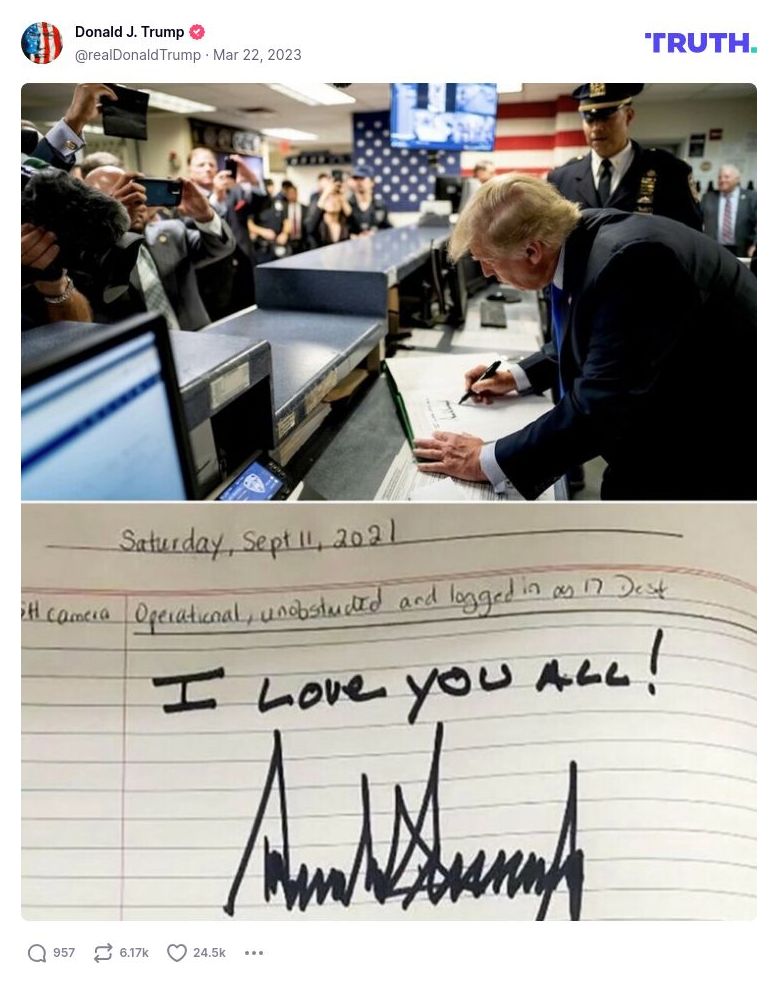 Donald J. Trump
@realDonaldTrump · Mar 22, 2023
TRUTH.
Saturday, Sept 11, 2021
camera Operational, unobstructed and logged in as 17 Desk
I Love you ALL!
957 6.17k 24.5k